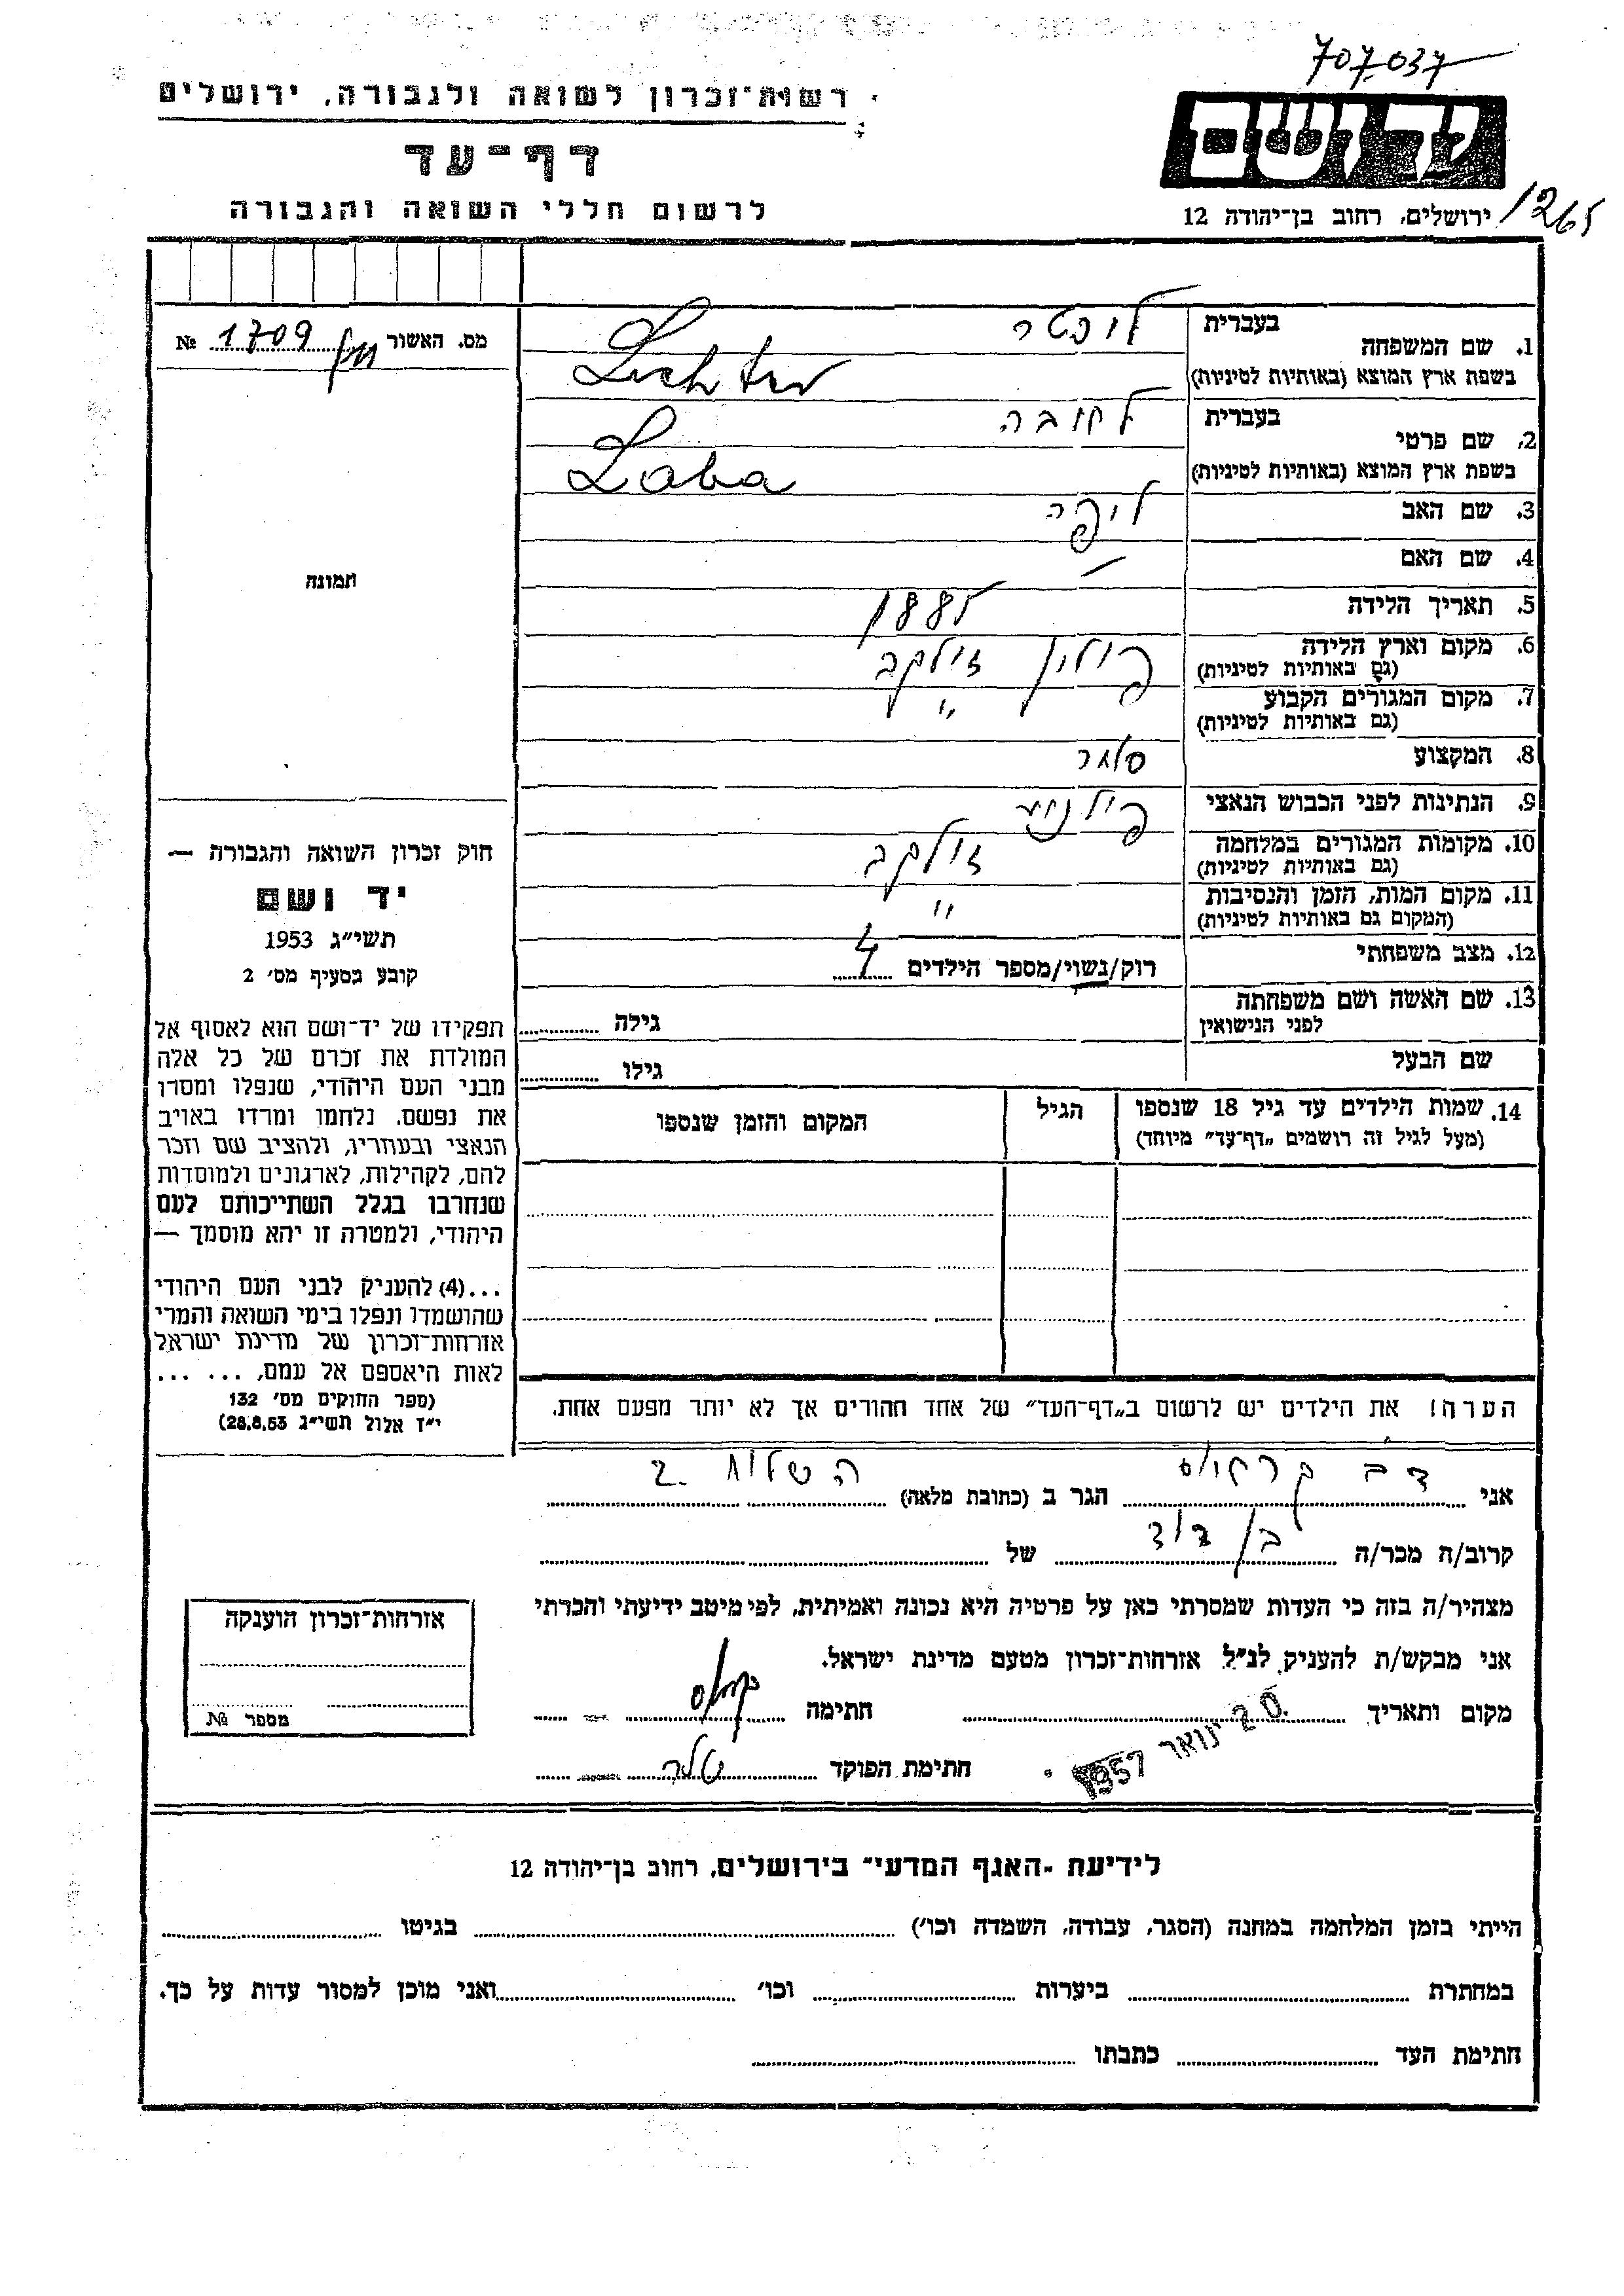 707.037
רשות־זכרון לשואה ולגבורה, ירושלים
יד ושם
דף־עד
לרשום חללי השואה והגבורה
ירושלים, רחוב בן־יהודה 12
1265
מס. האשור 1709 №
1. שם המשפחה
בעברית
ליכטר
בשפת ארץ המוצא (באותיות לטיניות)
Lichter
2. שם פרטי
בעברית
בשפת ארץ המוצא (באותיות לטיניות)
Laba
3. שם האב ליפה
4. שם האם —
5. תאריך הלידה 1885
6. מקום וארץ הלידה פולין זולקב
(גם באותיות לטיניות)
7. מקום המגורים הקבוע "
(גם באותיות לטיניות)
8. המקצוע סוחר
9. הנתינות לפני הכבוש הנאצי
10. מקומות המגורים במלחמה זולקב
(גם באותיות לטיניות)
11. מקום המות, הזמן והנסיבות "
(המקום גם באותיות לטיניות)
12. מצב משפחתי רוק/נשוי/מספר הילדים 4
13. שם האשה ושם משפחתה
לפני הנישואין
גילה
שם הבעל גילו
14. שמות הילדים עד גיל 18 שנספו
(מעל לגיל זה רושמים „דף־עד" מיוחד)
הגיל
המקום והזמן שנספו
הערה! את הילדים יש לרשום ב„דף־העד" של אחד ההורים אך לא יותר מפעם אחת.
תמונה
חוק זכרון השואה והגבורה —
יד ושם
תשי״ג 1953
קובע בסעיף מס׳ 2
תפקידו של יד־ושם הוא לאסוף אל
המולדת את זכרם של כל אלה
מבני העם היהודי, שנפלו ומסרו
את נפשם. נלחמו ומרדו באויב
הנאצי ובעוזריו, ולהציב שם וזכר
להם, לקהילות, לארגונים ולמוסדות
שנחרבו בגלל השתייכותם לעם
היהודי, ולמטרה זו יהא מוסמך —
...(4) להעניק לבני העם היהודי
שהושמדו ונפלו בימי השואה והמרי
אזרחות־זכרון של מדינת ישראל
לאות היאספם אל עמם, ... ...
(ספר החוקים מס׳ 132
י״ד אלול תשי״ג 28.8.53)
אני דב הגר ב (כתובת מלאה) השלוח 2
קרוב/ה מכר/ה בן דוד של
מצהיר/ה בזה כי העדות שמסרתי כאן על פרטיה היא נכונה ואמיתית, לפי מיטב ידיעתי והכרתי
אני מבקש/ת להעניק לנ״ל אזרחות־זכרון מטעם מדינת ישראל.
מקום ותאריך 20. ינואר 1957 חתימה
חתימת הפוקד
אזרחות־זכרון הוענקה
מספר №
לידיעת „האגף המדעי" בירושלים, רחוב בן־יהודה 12
הייתי בזמן המלחמה במחנה (הסגר, עבודה, השמדה וכו׳) בגיטו
במחתרת ביערות וכו׳ ואני מוכן למסור עדות על כך.
חתימת העד כתבתו